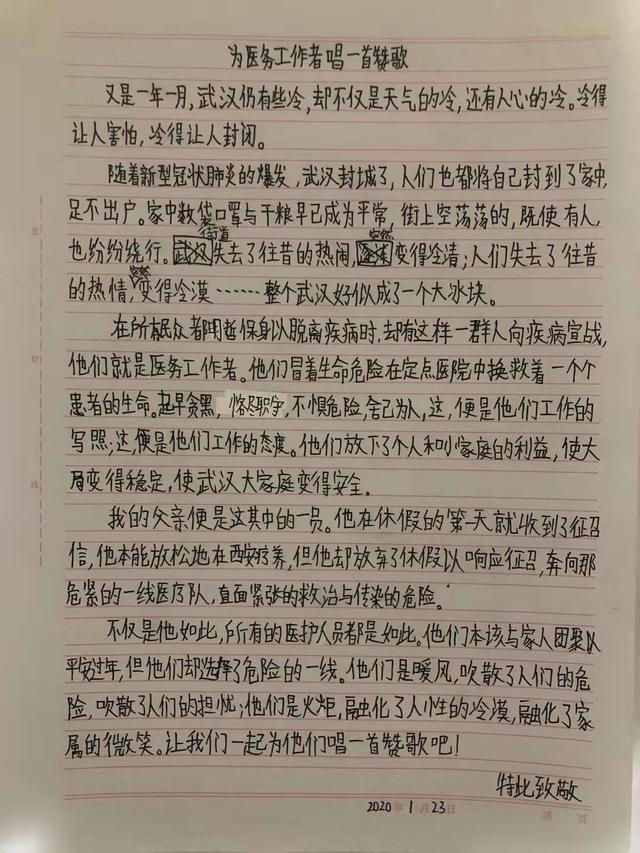 为医务工作者唱一首赞歌
又是一年一月,武汉仍有些冷,却不仅是天气的冷,还有人心的冷。冷得
让人害怕,冷得让人封闭。
随着新型冠状肺炎的爆发,武汉封城了,人们也都将自己封到了家中,
足不出户。家中数袋口罩与干粮早已成为平常,街上空荡荡的,既使有人,
街道 安然
也纷纷绕行。武汉失去了往昔的热闹,变得冷清;人们失去了往昔
的热情,变得冷漠……整个武汉好似成了一个大冰块。
在所有民众都明哲保身以脱离疾病时,却有这样一群人向疾病宣战,
他们就是医务工作者。他们冒着生命危险在定点医院中换救着一个个
患者的生命。起早贪黑,恪尽职守,不惧危险,舍己为人,这,便是他们工作的
写照;这,便是他们工作的态度。他们放下了个人和小家庭的利益,使大
局变得稳定,使武汉大家庭变得安全。
我的父亲便是这其中的一员。他在休假的第一天就收到了征召
信,他本能放松地在西安疗养,但他却放弃了休假以响应征召,奔向那
危紧的一线医疗队,直面紧张的救治与传染的危险。
不仅是他如此,所有的医护人员都是如此。他们本该与家人团聚以
平安过年,但他们却选择了危险的一线。他们是暖风,吹散了人们的危
险,吹散了人们的担忧;他们是火炬,融化了人性的冷漠,融化了家
属的微笑。让我们一起为他们唱一首赞歌吧!
特此致敬
2020年1月23日
第 页
订
线